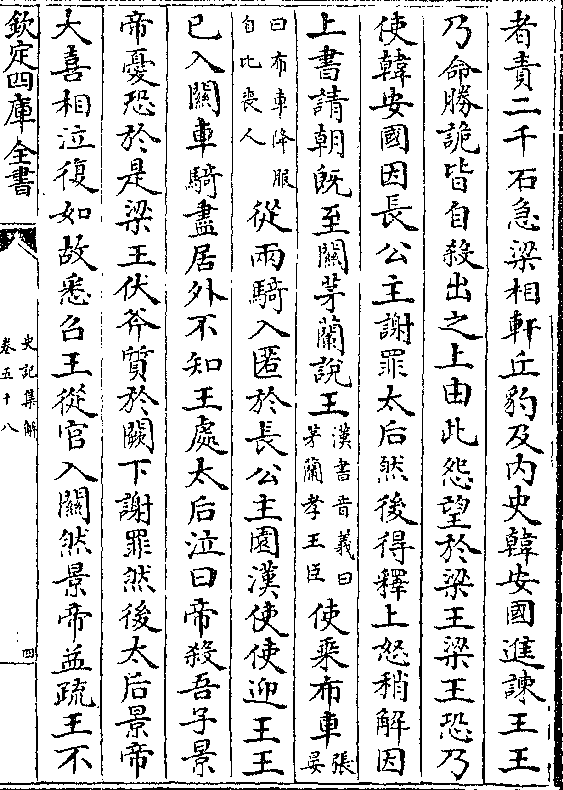 者責二千石急梁相軒丘豹及内史韓安國進諫王王
乃命勝詭皆自殺出之上由此怨望於梁王梁王恐乃
使韓安國因長公主謝罪太后然後得釋上怒稍解因
上書請朝既至關茅蘭說王漢書音義曰茅蘭孝王臣使乘布車張晏
曰布車降服自比喪人從兩騎入匿於長公主園漢使使迎王王
已入關車騎盡居外不知王處太后泣曰帝殺吾子景
帝憂恐於是梁王伏斧質於闕下謝罪然後太后景帝
大喜相泣復如故悉召王從官入關然景帝益疏王不
欽定四庫全書
史記集解
卷五十八
四